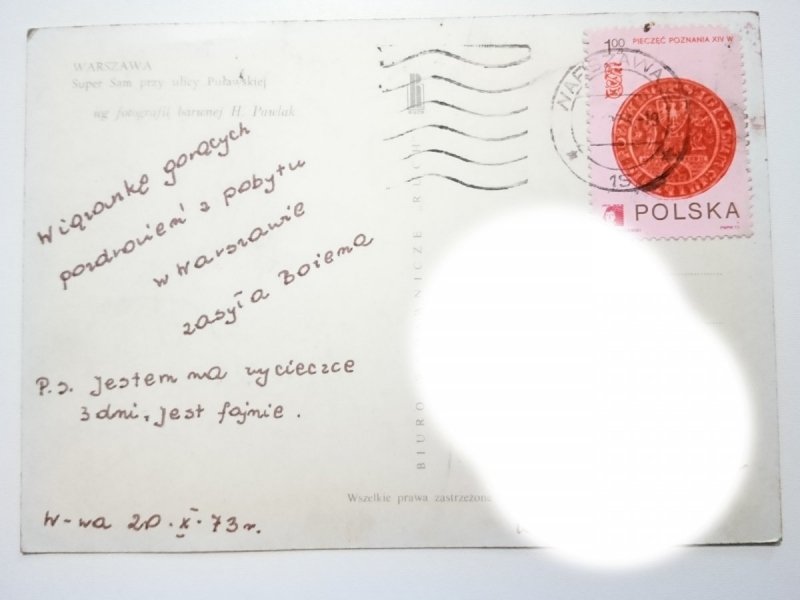 WARSZAWA
Super Sam przy ulicy Puławskiej
wg fotografii barwnej H. Pawlak
Wiązankę gorących
pozdrowień z pobytu
w Warszawie
zasyła Bożena
P.s. jestem na wycieczce
3 dni, jest fajnie.
W-wa 20.X.73r.
BIURO WYDAWNICZE RUCH
Wszelkie prawa zastrzeżone
1.00 PIECZĘĆ POZNANIA XIV W
POLSKA
WARSZAWA
19